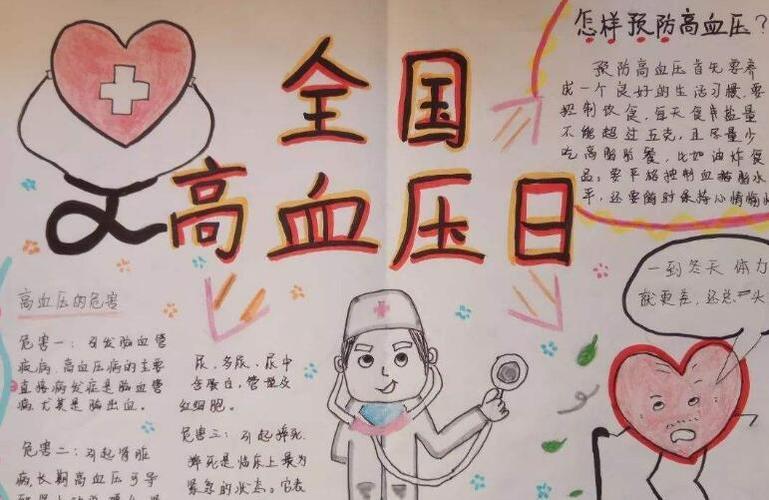 全国
高血压日
怎样预防高血压？
预防高血压首先要养
成一个良好的生活习惯，要
控制饮食，每天食用盐量
不能超过五克，且尽量少
吃高脂肪餐，比如油炸食
品。要平稳控制血糖脂水
平，还要随时保持心情愉
一到冬天体力
就更差，还总
头
高血压的危害
危害一：引发脑血管
疾病，高血压病的主要
直接病发症是脑血管
病尤其是脑出血。
危害二：引起肾脏
病，长期高血压可导
尿、多尿、尿中
含蛋白，管型及
红细胞。
危害三：引起猝死
猝死是临床上最为
紧急的状态。它表